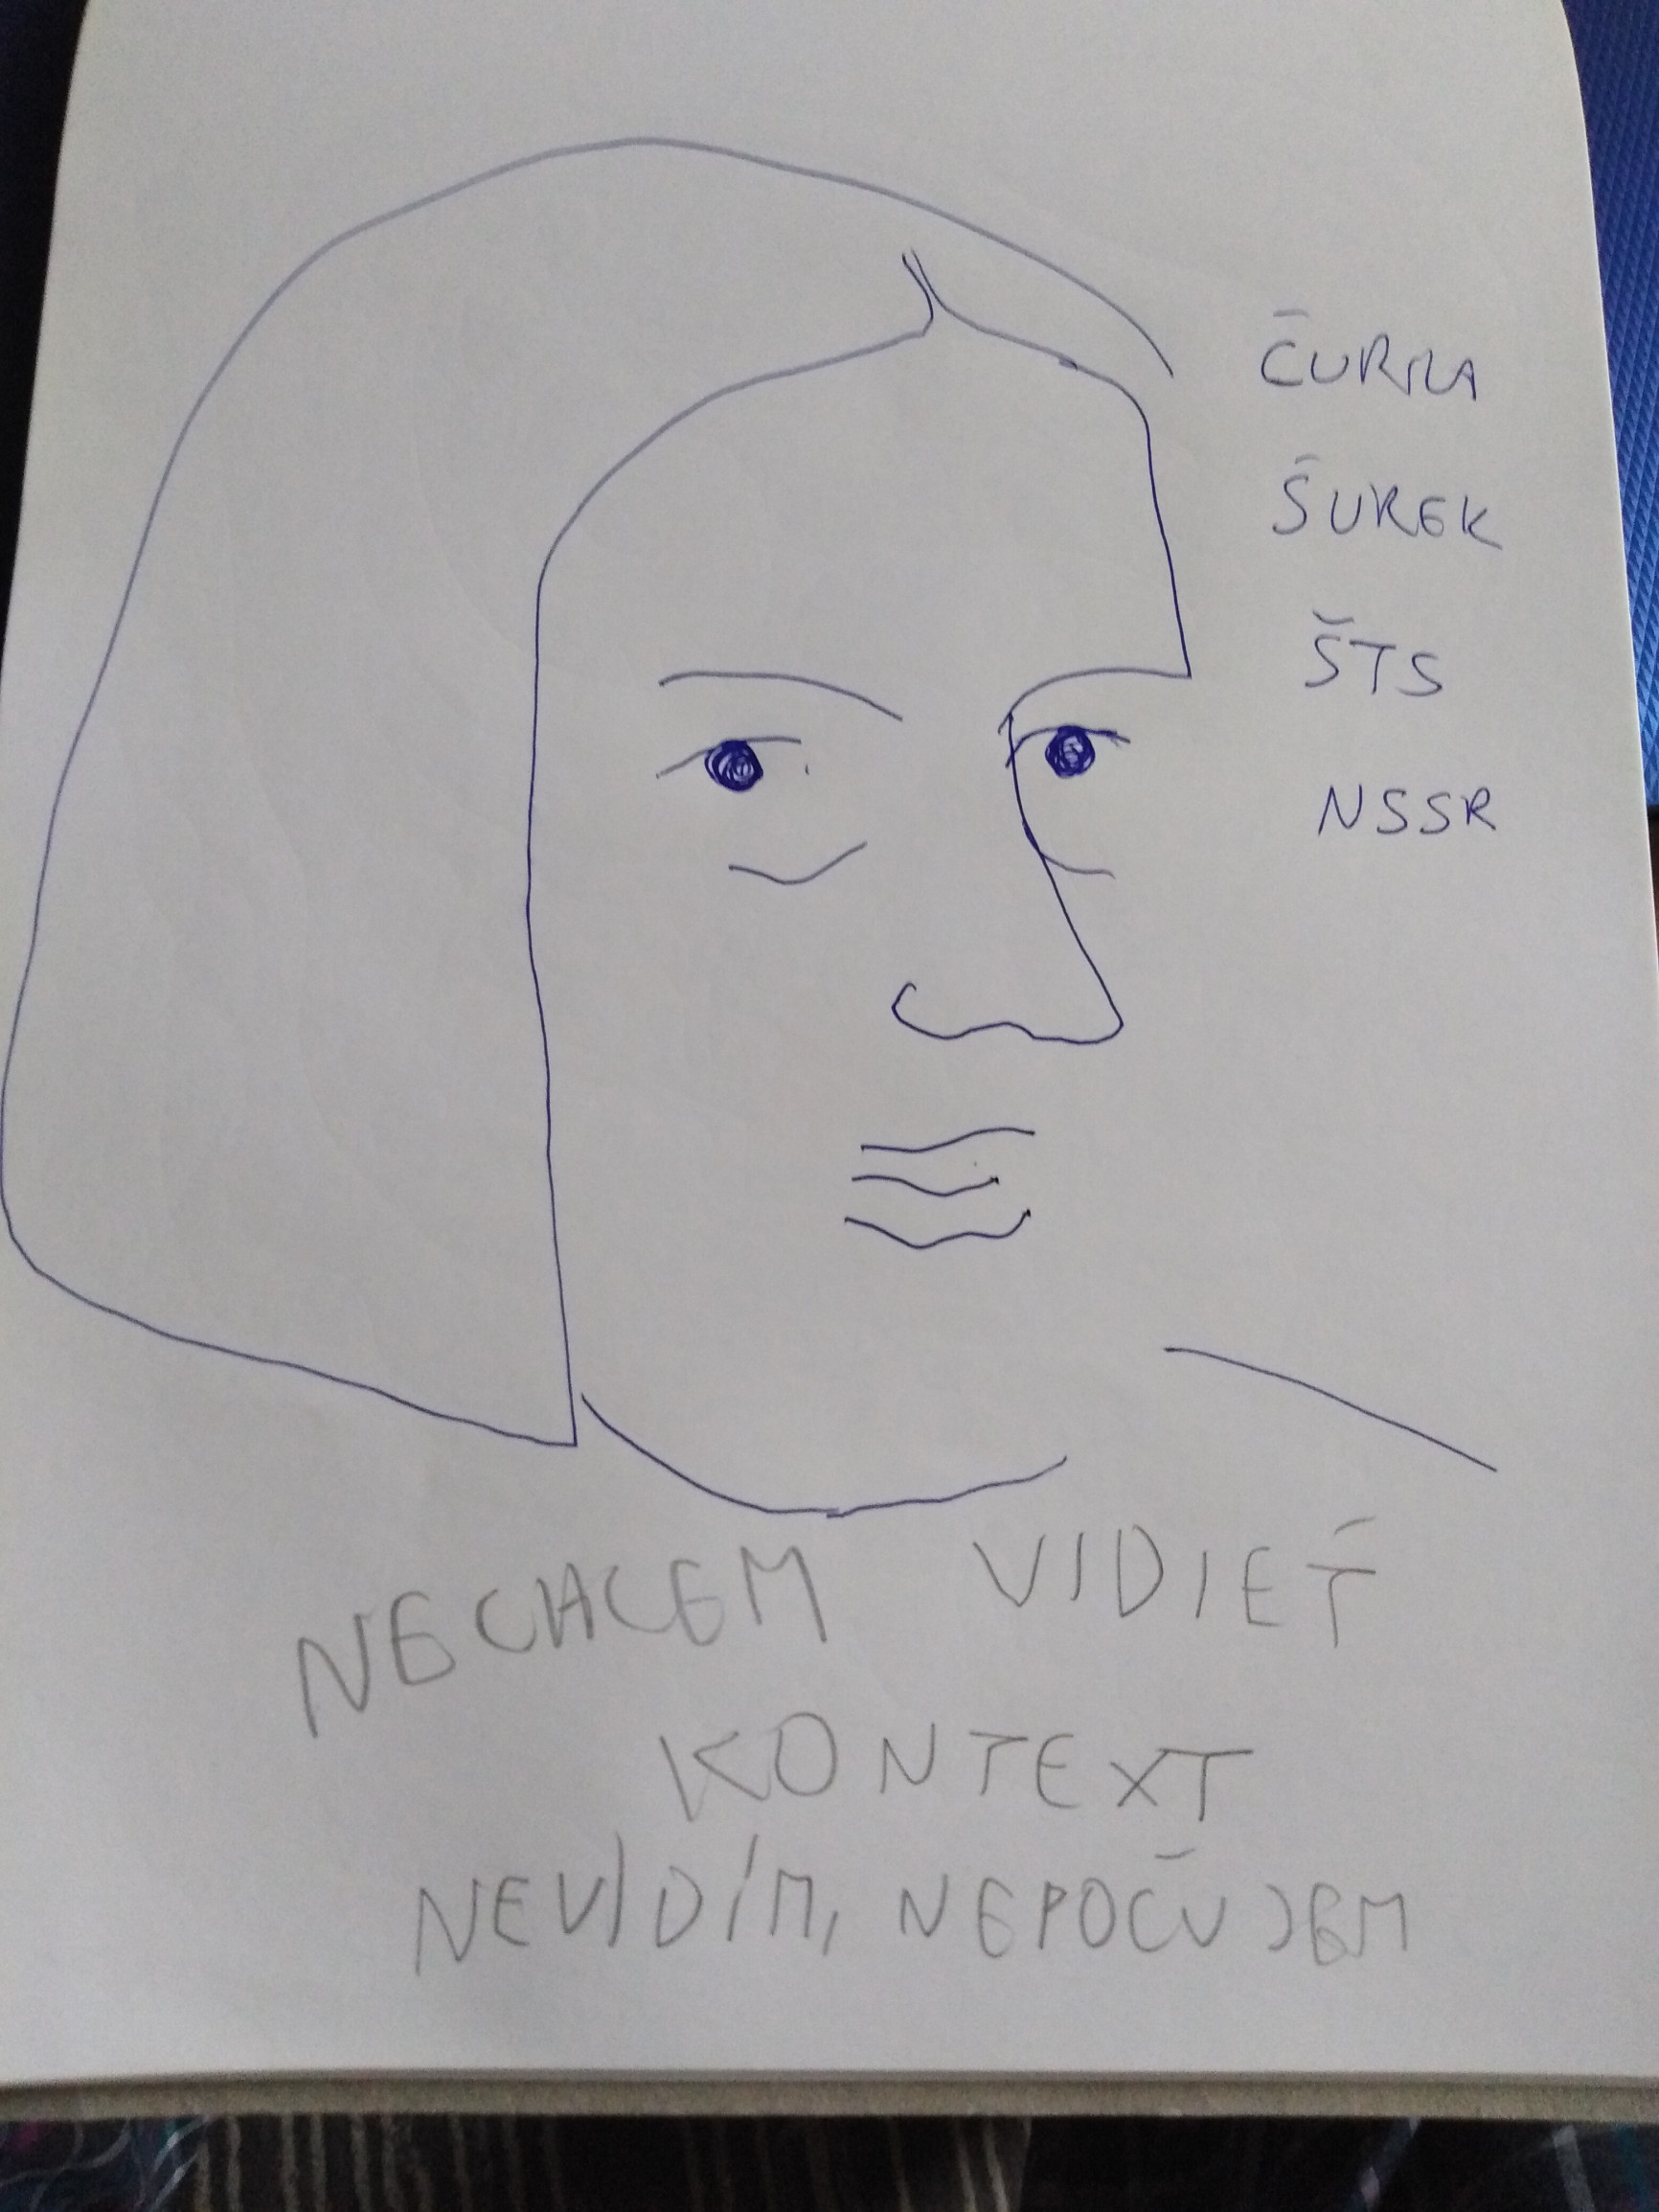 ČURILLA
ŠUREK
ŠTS
NSSR
NECHCEM VIDIEŤ
KONTEXT
NEVIDÍM, NEPOČUJEM